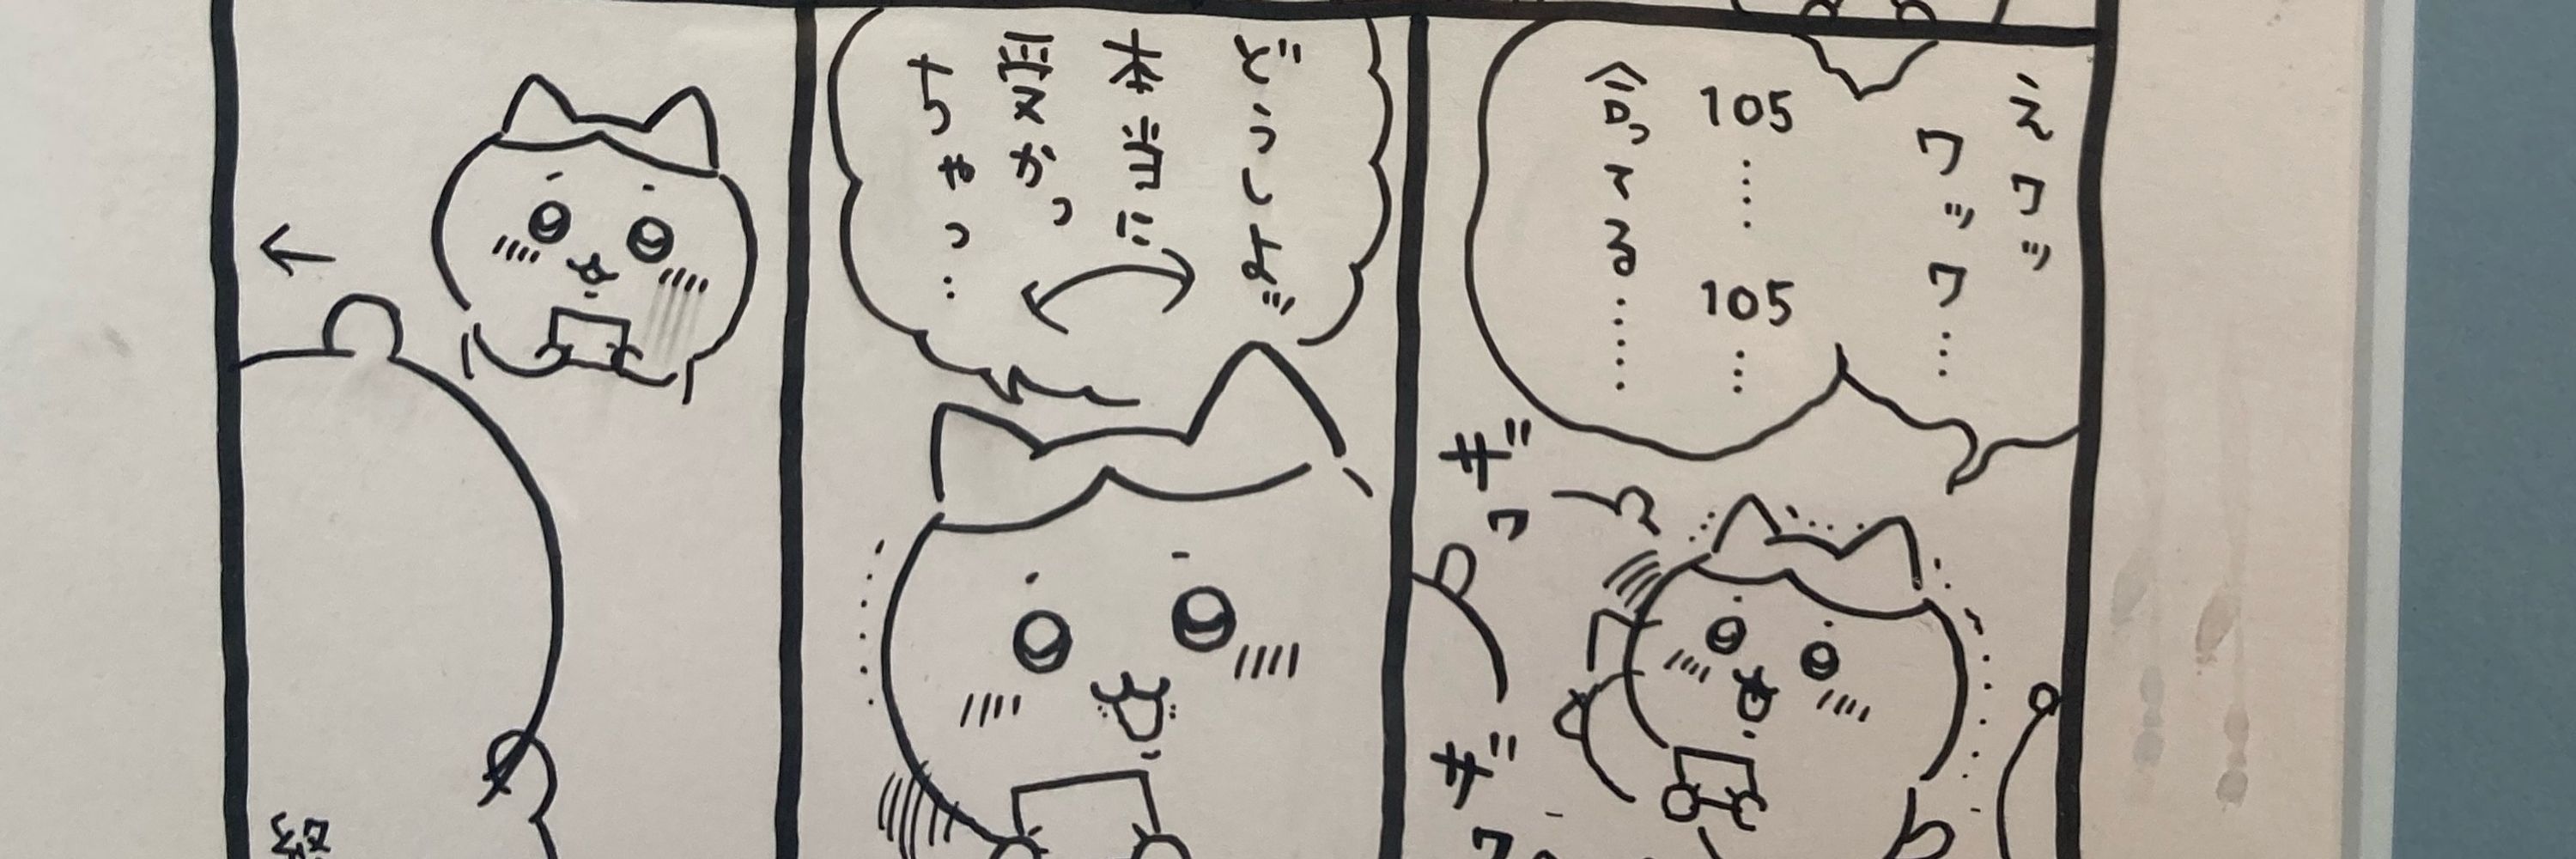 えワッ
ワッワ…
105……105…
合ってる……
ザワ
ザワ
どうしよッ
本当に
受かっ
ちゃっ…